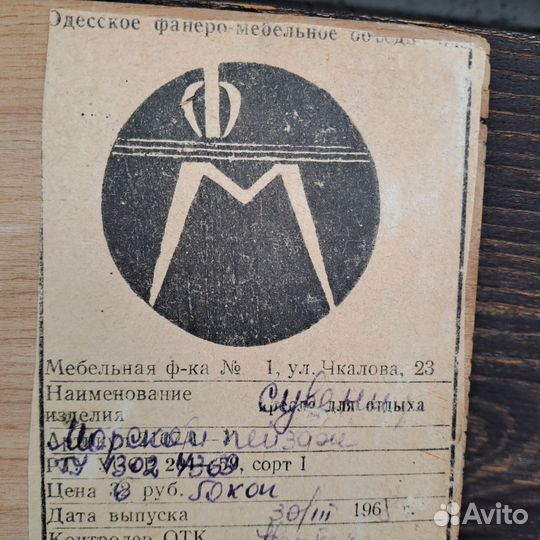 Одесское фанеро-мебельное
ФМ
Мебельная ф-ка № 1, ул. Чкалова, 23
Наименование Сувенир
изделия кресло для отдыха
Морской пейзаж
сорт I
Цена 8 руб. 50 коп
Дата выпуска 30/III 196 г.
Контролер ОТК
Avito